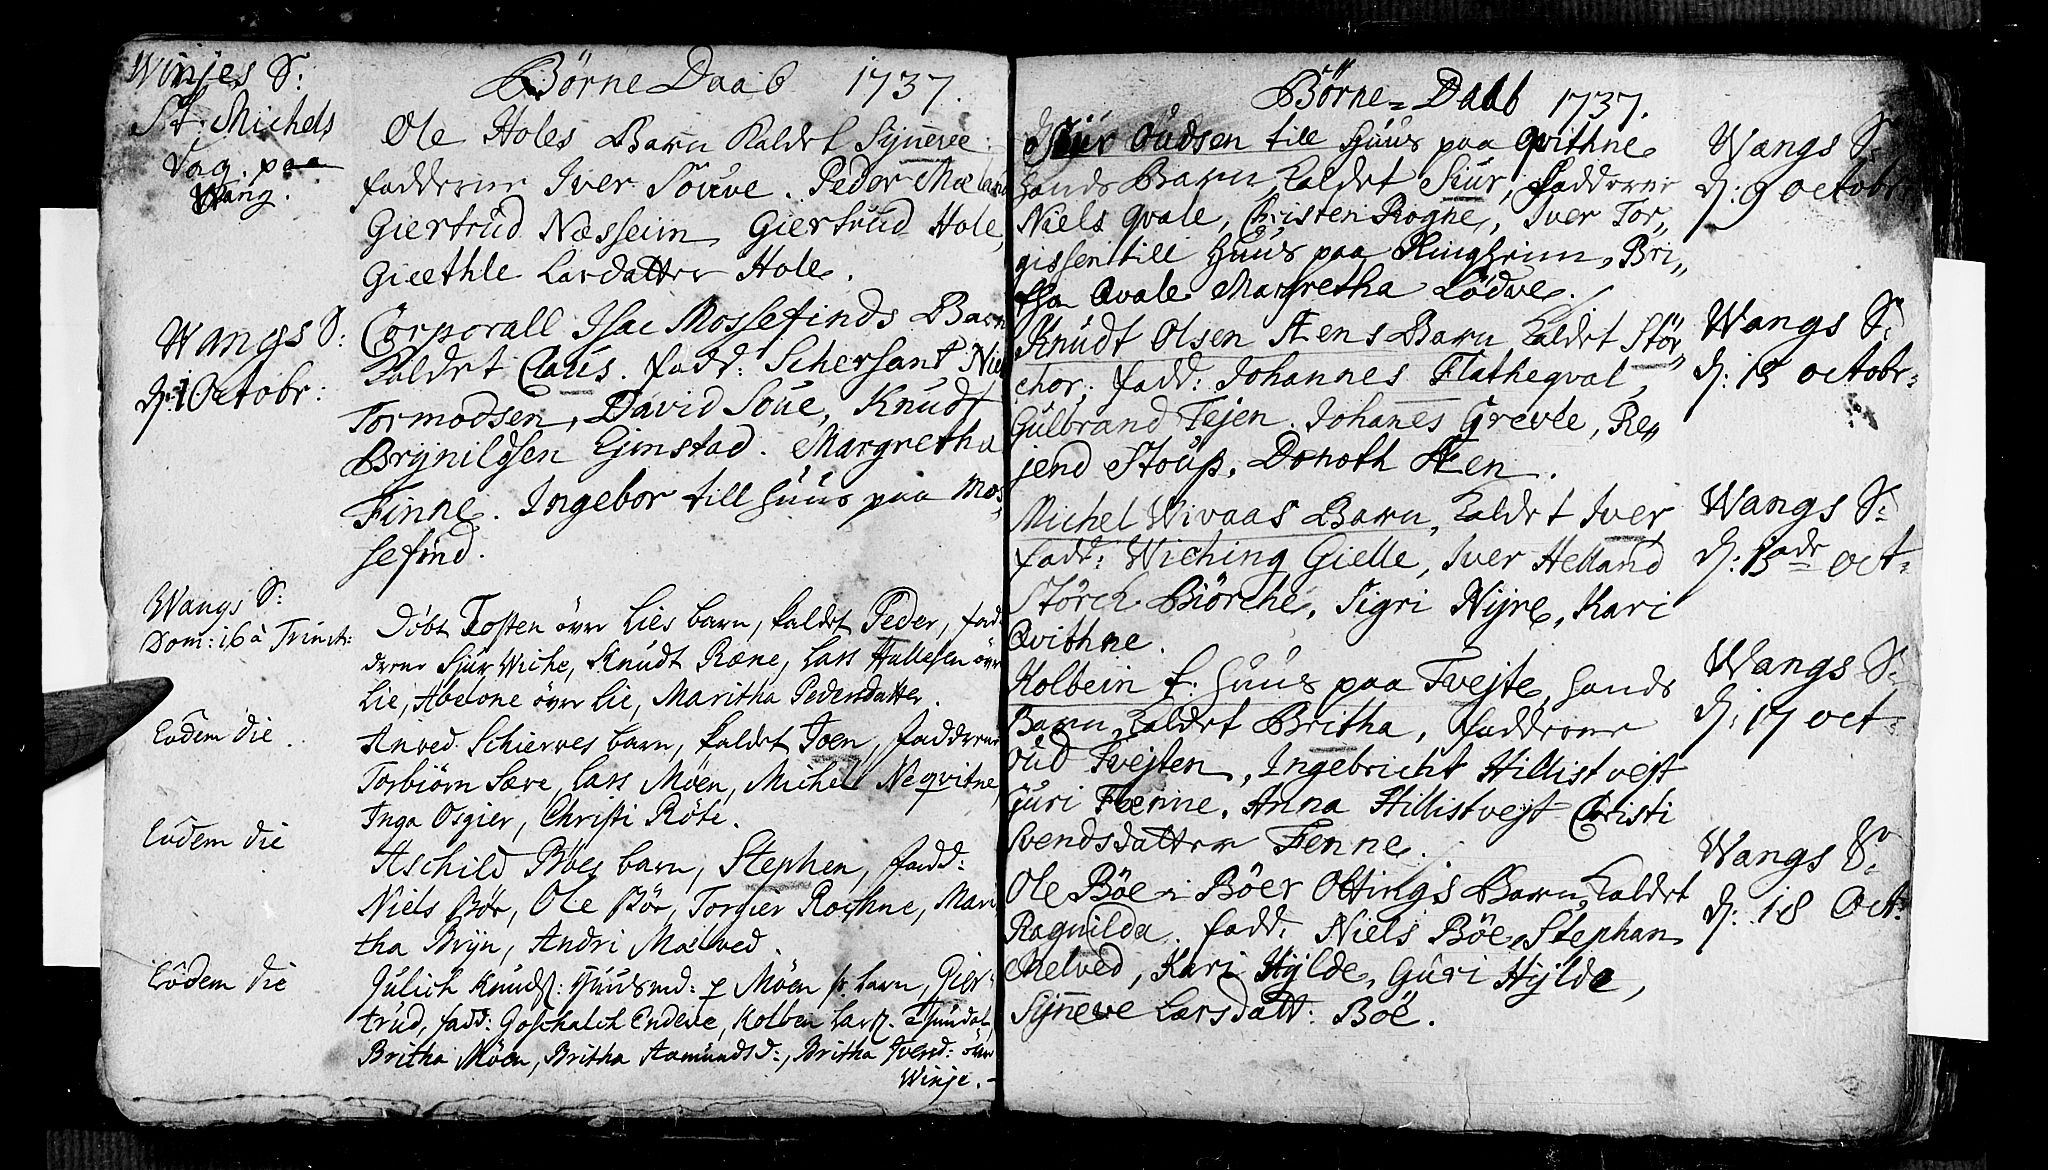 Börne Daab 1737.
Winjes S:
St: Michels
Dag. paa
Wang.
Ole Holes Barn kaldet Synneve.
fadderne Iver Soüve. Peder Mæland
Giertrüd Næsseim, Giertrüd Hole,
Giæthle Larsdatter Hole.
Wangs S:
d: 1 Octobr:
Corporall Isac Mossefinds Barn
kaldet Claüs. fadd: Schersant Niels
Tormodsen, David Soüe, Knüdt
Brynildsen Gimstad. Margretha
Finne. Ingebor till Huus paa Mos,,
sefind.
Wangs S:
Dom: 16 à Trinit:
Döbt Tosten övre Lies barn, kaldet Peder, fad,,
derne Sjür Wiche, Knüdt Ræne, Lars Hallesen övre
Lie, Abelone övre Lie, Maritha Pedersdatter.
Eodem die.
Anved Schierves barn, kaldet Joen, fadderne
Torbiörn Sære, Lars Möen, Michel Neqvitne,
Inga Osgier, Christi Röte.
Eodem die
Aschild Böes barn, Stephen, fadd:
Niels Bör, Ole Bör, Torgier Rochne, Mari
tha Bryn, Andri Mælved.
Eodem die
Julich Knuds: Huusmd: p Möen s: barn, Gier-
trud, fadd: Goschalch Endeve, Kolben Lars:
Britha Möen, Britha Aamunds d:, Britha Iversd: övre
Winje.-
Börne-Daab 1737.
Siür Oüdsen till Huus paa Qvithne
Hands Barn kaldet Siür, fadderne
Niels Qvale, Christen Rogne, Iver Tor,,
gissen till Huus paa Ringheim, Bri,,
tha Qvale Margretha Lödve.
Wangs S:
d: 9 octobr:
Knüdt Olsen Stens Barn kaldet Stör,,
chor. fadd: Johannes Flatheqval,
Gülbrand Tejen. Johanes Grevle, Re,,
jend Stoüp. Doroth Sten.
Wangs S:
d: 13 octobr:
Michel Wivaas Barn, kaldet Iver,
fadd: Wiching Gielle, Iver Helland
Störch Biörche. Sigri Nijre, Kari
Qvithne.
Wangs S:
d: 13 oct:
Kolbein t: Huus paa Tvejte, Hands
Barn kaldet Britha, fadderne
Oüd Tvejten, Ingebricht Hillistvejt
Güri Fenne. Anna Hillistvejt Christi
Svendsdatter Fenne.
Wangs S:
d: 17 oct:
Ole Böe i Böer Ottings Barn kaldet
Ragnilda. fadd: Niels Böe, Stephan
Melved, Kari Hylde, Güri Hylde,
Synneve Larsdatt: Böe.
Wangs S:
d: 18 Oct: